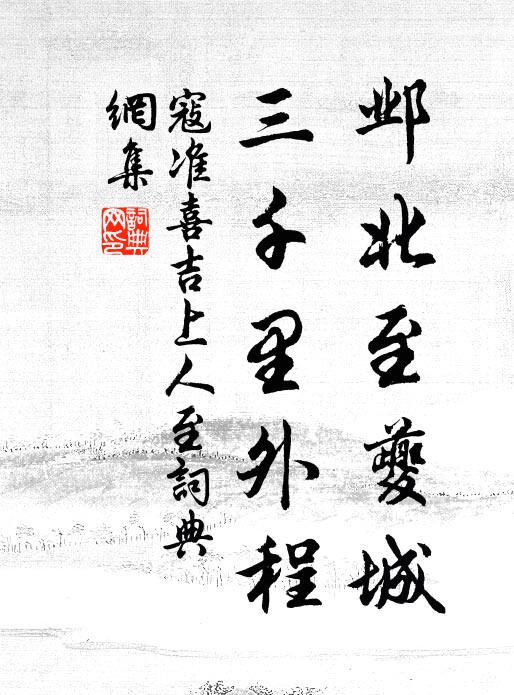 邺北至夔城
三千里外程
寇准喜吉上人至詞典
網集
詞典
网印